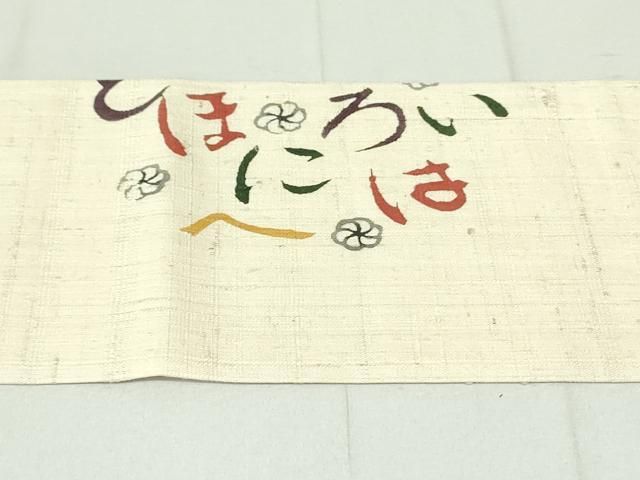 いろは
にほへ
と